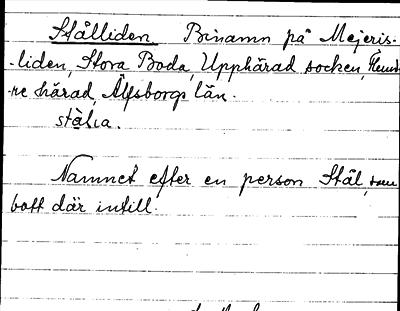 Stålliden Binamn på Mejeris-
-liden, Stora Boda, Upphärad socken,
-ne härad, Älfsborgs län.
stålia.
Namnet efter en person Stål, som
bott där intill.